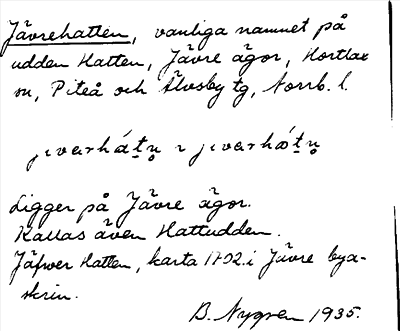 Jävrehatten, vanliga namnet på
udden Hatten, Jävre ägor, Hortlax
sn, Piteå och Älvsby tg, Norrb. l.
Ligger på Jävre ägor.
Kallas även Hattudden.
Jäfwer Hatten, karta 1792 i Jävre bya-
skrin.
B. Nygren 1935.